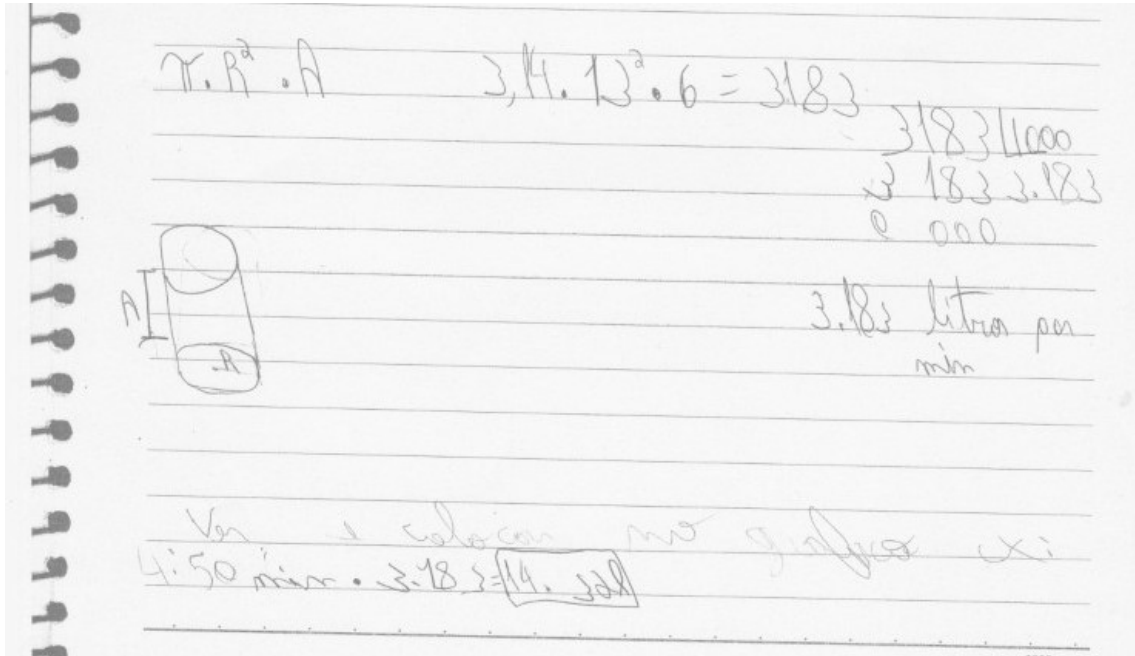 π.R².A 3,14.13².6 = 3183
3183 1000
3 183 3.183
0 000
A
R
3.183 litros por
min
Ver e colocar no gráfico
4:50 min . 3.183=14.